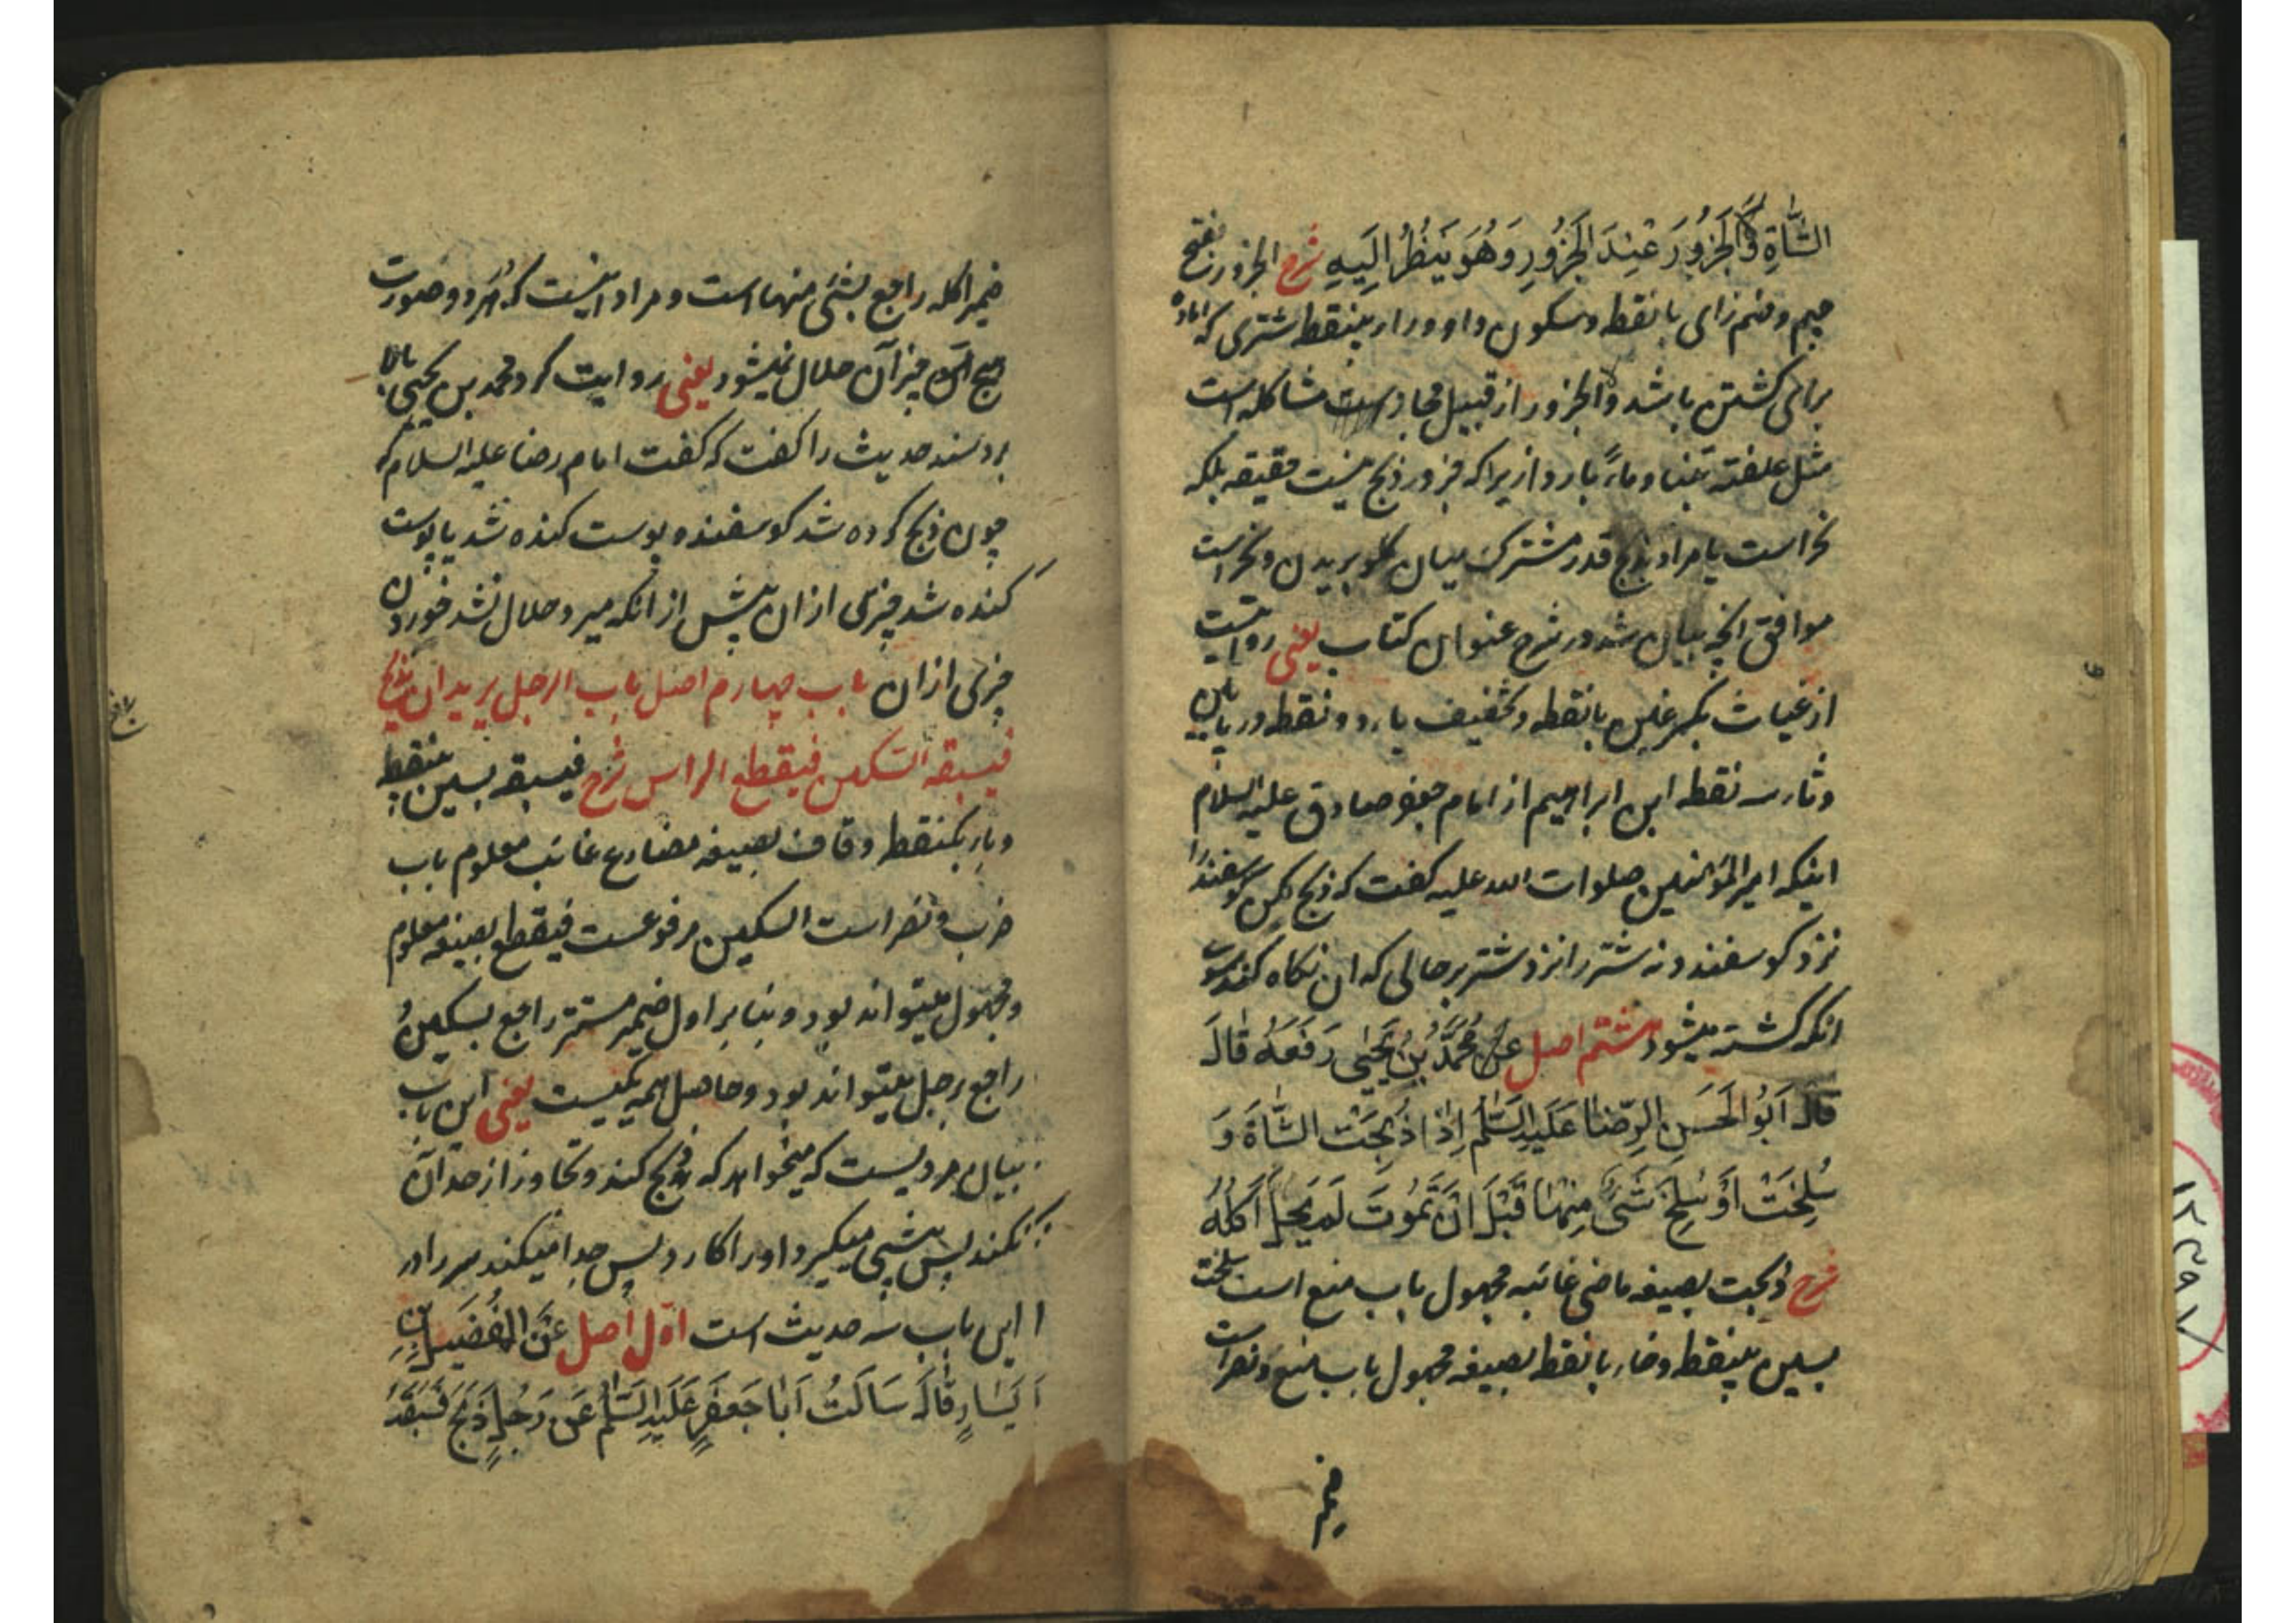 الشَّاةِ وَلَا الْجَزُورَ عِنْدَ الْجَزُورِ وَهُوَ يَنْظُرُ اِلَيْهِ شرح الجزور بفتح
جیم و ضم زای با نقطه و سکون واو و راء بینقطه شتری که اماده
برای کشتن باشد و لا الجزور از قبیل مجاز است مشاکله است
مثل علفته تبنا و ماءً باردا زیرا که جزور ذبح نیست حقیقه بلکه
نحر است یا مراد بذبح قدر مشترک میان گلو بریدن و نحر است
موافق انچه بیان شد در شرح عنوان کتاب یعنی روایت
از غیاث بکسر غین با نقطه و تخفیف یاء دو نقطه در پایین
و ثاء سه نقطه ابن ابراهیم از امام جعفر صادق علیه السلام
اینکه امیر المؤمنین صلوات الله علیه گفت که ذبح مکن گوسفند را
نزد گوسفند و نه شتر را نزد شتر بر حالی که ان نگاه کند بسوی
انکه کشته میشود هشتم اصل عَنْ مُحَمَّدِ بْنِ يَحْيٰى رَفَعَهُ قَالَ
قَالَ اَبُو الْحَسَنِ الرِّضَا عَلَيْهِ السَّلٰمُ اِذَا ذُبِحَتْ الشَّاةُ وَ
سُلِخَتْ اَوْ سُلِخَ شَيْءٌ مِنْهَا قَبْلَ اَنْ تَمُوتَ لَمْ يَحِلَّ اَكْلُهُ
شرح ذبحت بصیغه ماضی غائبه مجهول باب منع است سلخت
بسین بینقطه و خاء با نقطه بصیغه مجهول باب منع و نصر است
ضمیر
ضمیر اکله راجع بشئ منها است و مراد اینست که در هر دو صورت
هیچ چیز آن حلال نمیشود یعنی روایت کرد محمد بن یحیی بالا
برد سند حدیث را گفت که گفت امام رضا علیه السلام که
چون ذبح کرده شد گوسفند و پوست کنده شد یا پوست
کنده شد چیزی از ان پیش از انکه میرد حلال نشد خوردن
چیزی از ان باب چهارم اصل باب الرجل یرید ان یذبح
فیسبقه السکین فیقطع الراس شرح فیسبقه بسین بینقطه
و باء یکنقطه و قاف بصیغه مضارع غائب معلوم باب
ضرب و نصر است السکین مرفوعست فیقطع بصیغه معلوم
و مجهول میتواند بود و بنا بر اول ضمیر مستتر راجع بسکین و
راجع برجل میتواند بود و حاصل همه یکیست یعنی این باب
بیان مردیست که میخواهد که ذبح کند و تجاوز از حد آن
نکند پس پیشی میگیرد او را کارد پس جدا میکند سر را در
این باب سه حدیث است اوّل اصل عَنِ الْفُضَيْلِ بْنِ
يَسَارٍ قَالَ سَاَلْتُ اَبَا جَعْفَرٍ عَلَيْهِ السَّلٰمُ عَنْ رَجُلٍ ذَبَحَ فَسَبَقَهُ